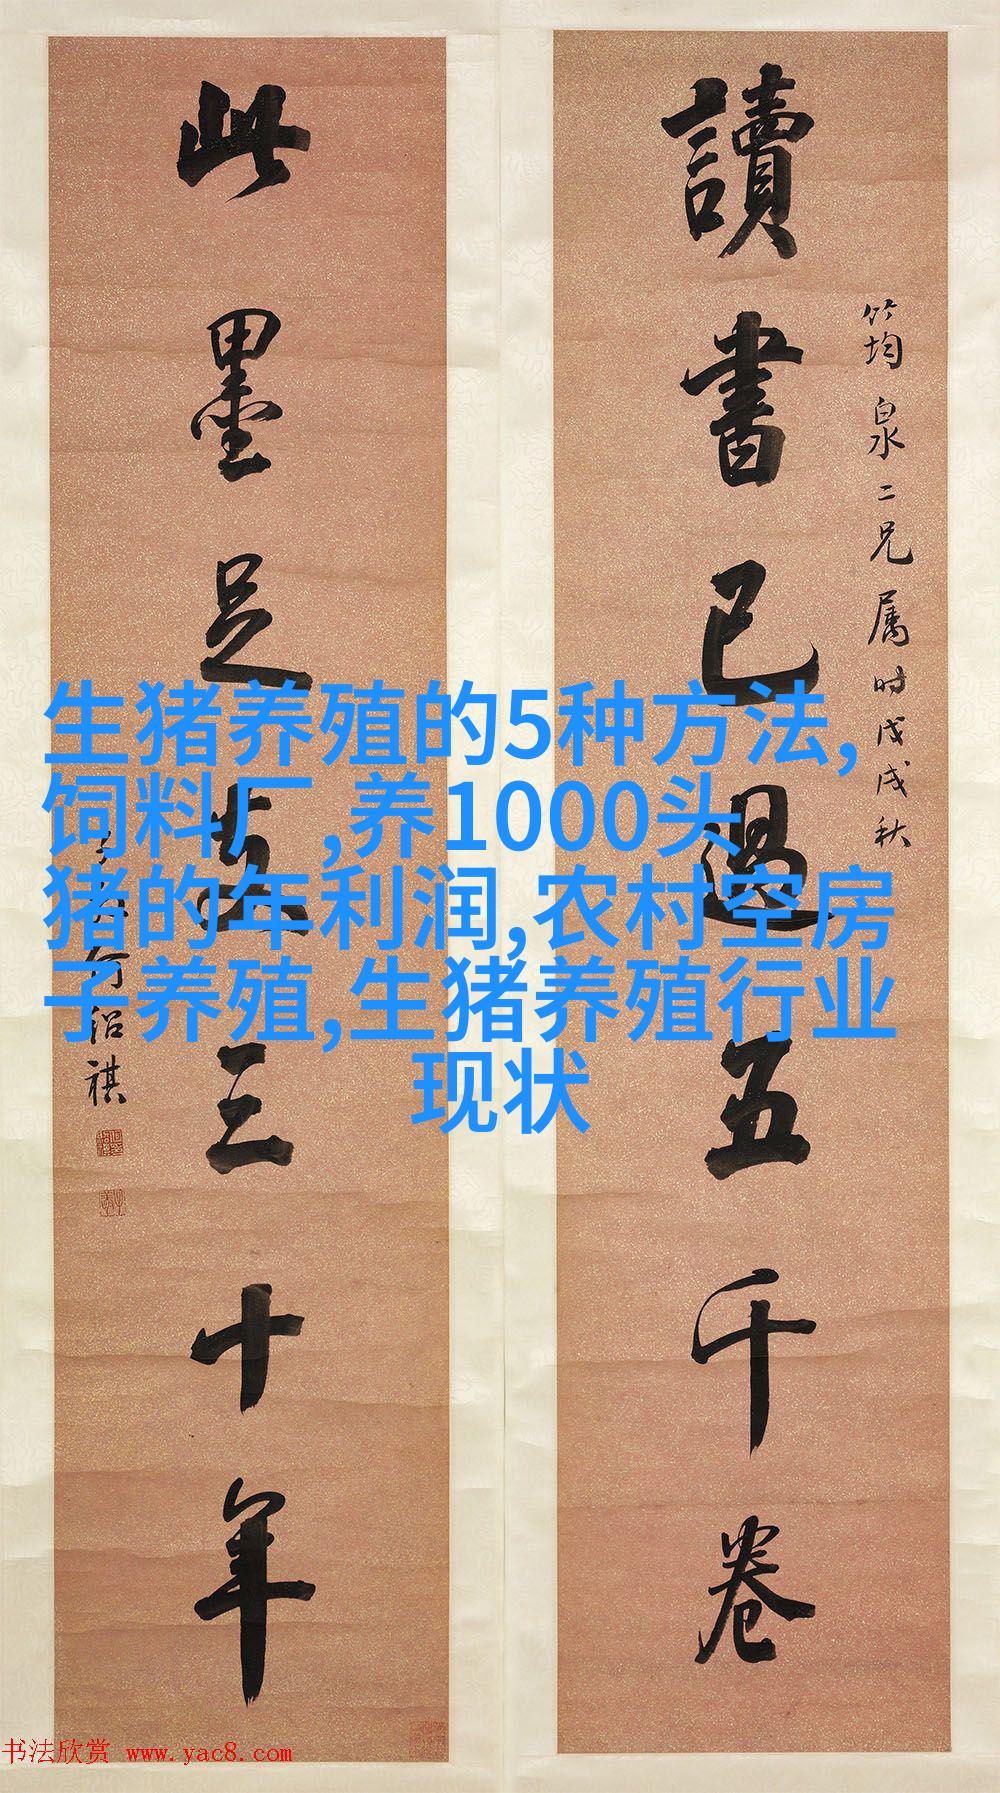 讀書已過五千卷
筠泉二兄属时戊戌秋
此墨足支三十年
何绍祺
生猪养殖的5种方法,
饲料厂,养1000头
猪的年利润,农村空房
子养殖,生猪养殖行业
现状
书法欣赏 www.yac8.com